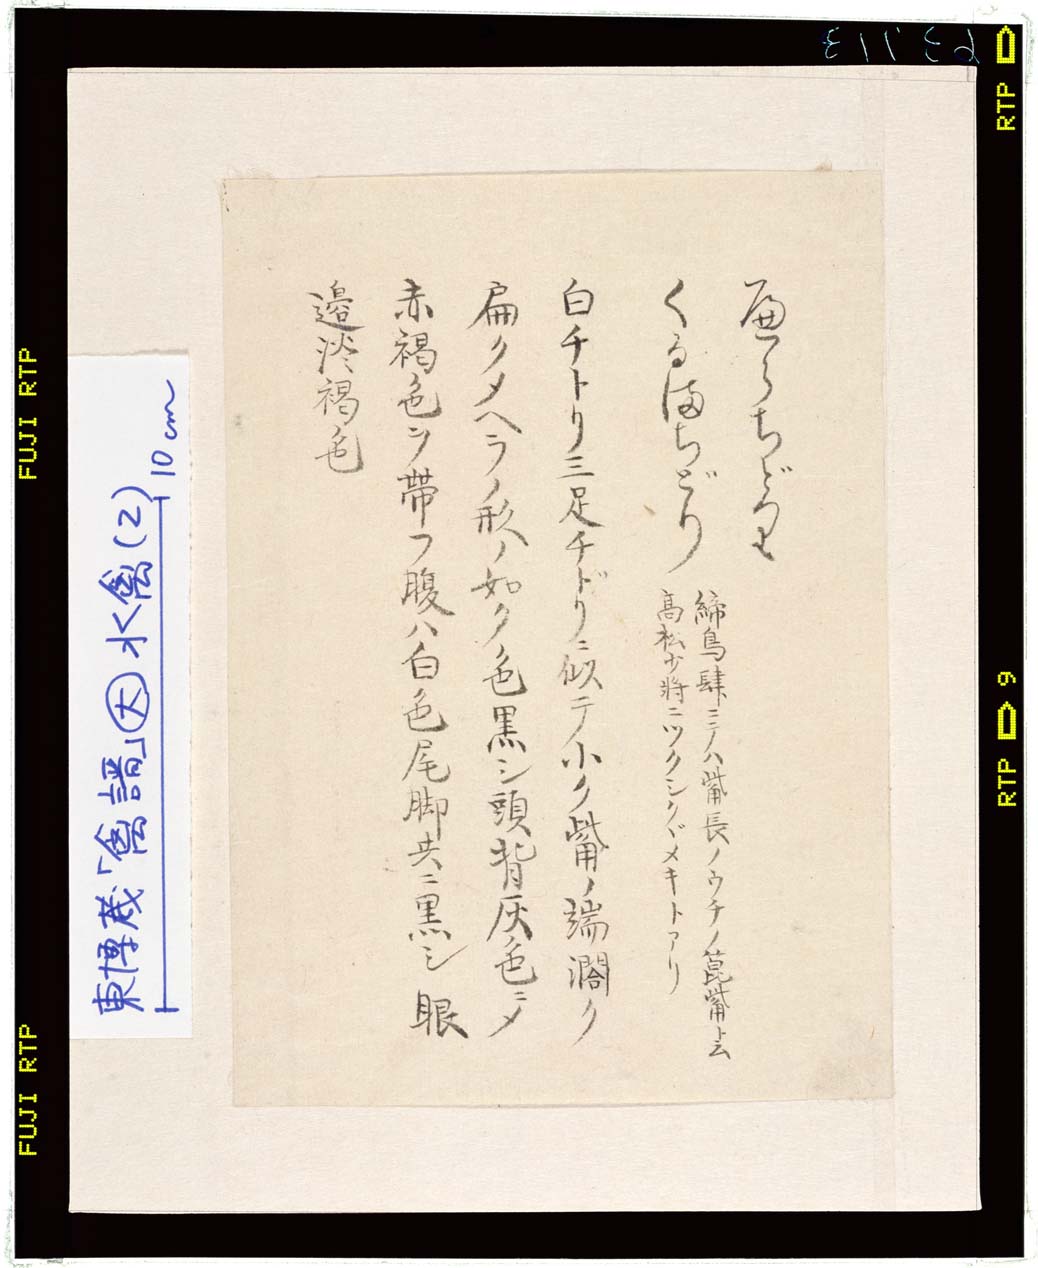 へらちどり
くるまちどり
締鳥肆ニテハ觜長ノウチノ箆觜ト云
高松少将ニツクシクヾメキトアリ
白チトリ三足チドリニ似テ小ク觜ノ端濶ク
扁クメヘラノ形ノ如クノ色黒シ頭背灰色ニメ
赤褐色ヲ帯フ腹ハ白色尾脚共ニ黒シ 眼
邉淡褐色
東博蔵「禽譜」大 水禽(2)
10cm
FUJI RTP
FUJI RTP
RTP
RTP 9